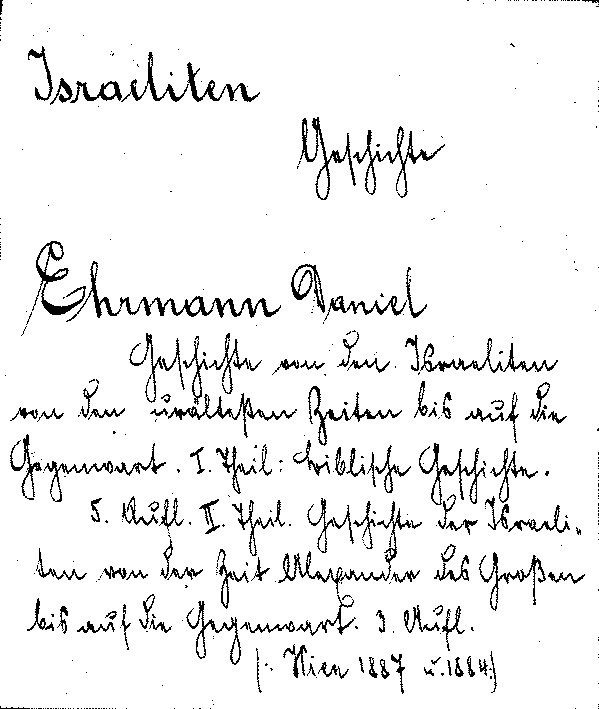 Israeliten
Geschichte
Ehrmann Daniel
Geschichte von den Israeliten
von den urältesten Zeiten bis auf die
Gegenwart. I. Theil: biblische Geschichte.
5. Aufl. II. Theil. Geschichte der Israeli-
ten von der Zeit Alexander des Großen
bis auf die Gegenwart. 3. Aufl.
(: Wien 1887 u. 1884:)